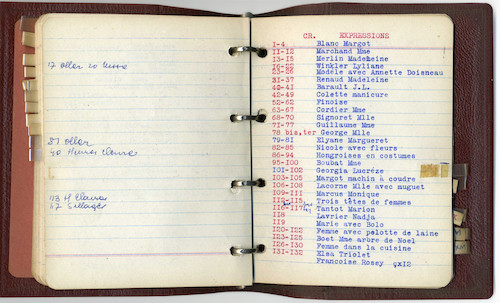 17 aller
81 aller
CR. EXPRESSIONS
1-4 Blanc Margot
11-12 Marchand Mme
13-15 Merlin Madeheine
16-22 Winkler Lyliane
23-26 Modèle avec Annette Doisneau
31-37 Renaud Madeleine
40-41 Barault J.L.
42-49 Colette manicure
52-62 Finoise
63-67 Cordier Mme
68-70 Signoret Mlle
71-77 Guillaume Mme
78 bis.ter George Mlle
79-81 Elyane Margueret
82-85 Nicole avec fleurs
86-94 Hongroises en costumes
95-100 Boubat Mme
101-102 Georgia Lucrèze
103-105 Margot machin à coudre
106-108 Lacorne Mlle avec muguet
109-111 Marcus Monique
112-115 Trois têtes de femmes
116-117 Tantot Marion
118 Lavrier Nadja
119 Marie avec Bolo
120-122 Femme avec pelotte de laine
123-125 Boet Mme arbre de Noel
126-130 Femme dans la cuisine
131-132 Elsa Triolet
Francoise Rosey çx12